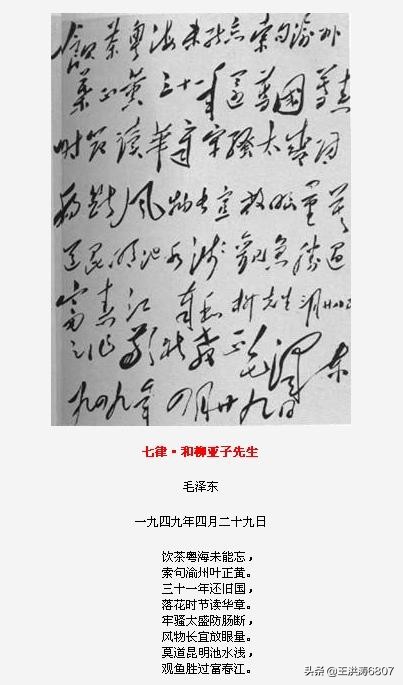 飲茶粤海未能忘索句渝州
葉正黄三十一年還舊國落花
时節讀華章牢騷太盛防
腸斷風物长宜放眼量莫
道昆明池水浅觀魚勝過
富春江 奉和柳先生三月廿八日
之作敬祈教正 毛泽东
一九四九年四月廿九日
七律·和柳亚子先生
毛泽东
一九四九年四月二十九日
饮茶粤海未能忘，
索句渝州叶正黄。
三十一年还旧国，
落花时节读华章。
牢骚太盛防肠断，
风物长宜放眼量。
莫道昆明池水浅，
观鱼胜过富春江。
头条 @王洪涛6807